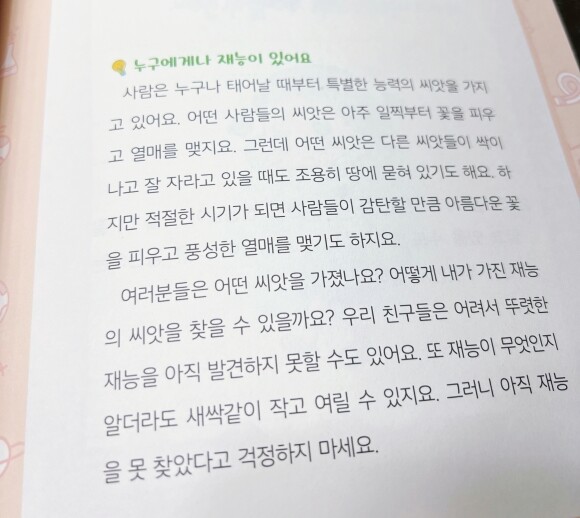 누구에게나 재능이 있어요
사람은 누구나 태어날 때부터 특별한 능력의 씨앗을 가지
고 있어요. 어떤 사람들의 씨앗은 아주 일찍부터 꽃을 피우
고 열매를 맺지요. 그런데 어떤 씨앗은 다른 씨앗들이 싹이
나고 잘 자라고 있을 때도 조용히 땅에 묻혀 있기도 해요. 하
지만 적절한 시기가 되면 사람들이 감탄할 만큼 아름다운 꽃
을 피우고 풍성한 열매를 맺기도 하지요.
여러분들은 어떤 씨앗을 가졌나요? 어떻게 내가 가진 재능
의 씨앗을 찾을 수 있을까요? 우리 친구들은 어려서 뚜렷한
재능을 아직 발견하지 못할 수도 있어요. 또 재능이 무엇인지
알더라도 새싹같이 작고 여릴 수 있지요. 그러니 아직 재능
을 못 찾았다고 걱정하지 마세요.